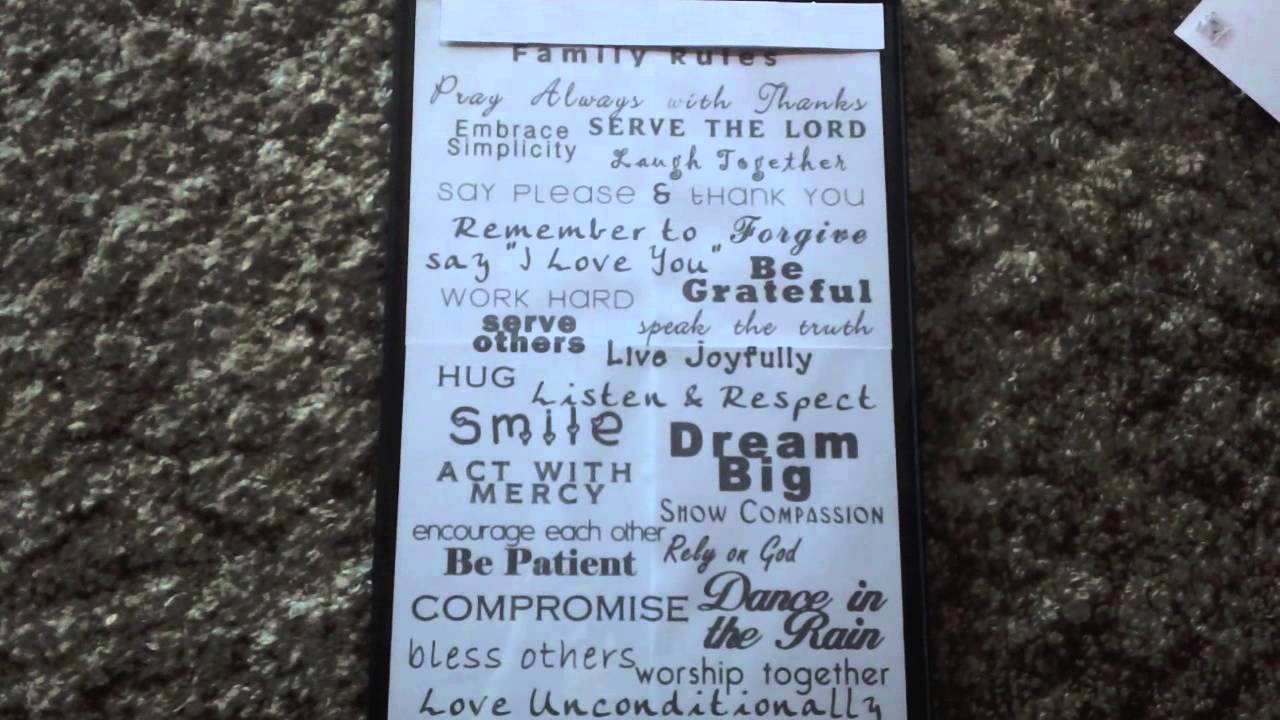 Family Rules
Pray Always with Thanks
Embrace
Simplicity
SERVE THE LORD
Laugh Together
SAY PLEASE & THANK YOU
Remember to Forgive
say "I Love You"
Be
Grateful
WORK HARD
serve
others
speak the truth
Live Joyfully
HUG
Listen & Respect
Smile
Dream
Big
ACT WITH
MERCY
SHOW COMPASSION
encourage each other
Rely on God
Be Patient
COMPROMISE
Dance in
the Rain
bless others
worship together
Love Unconditionally